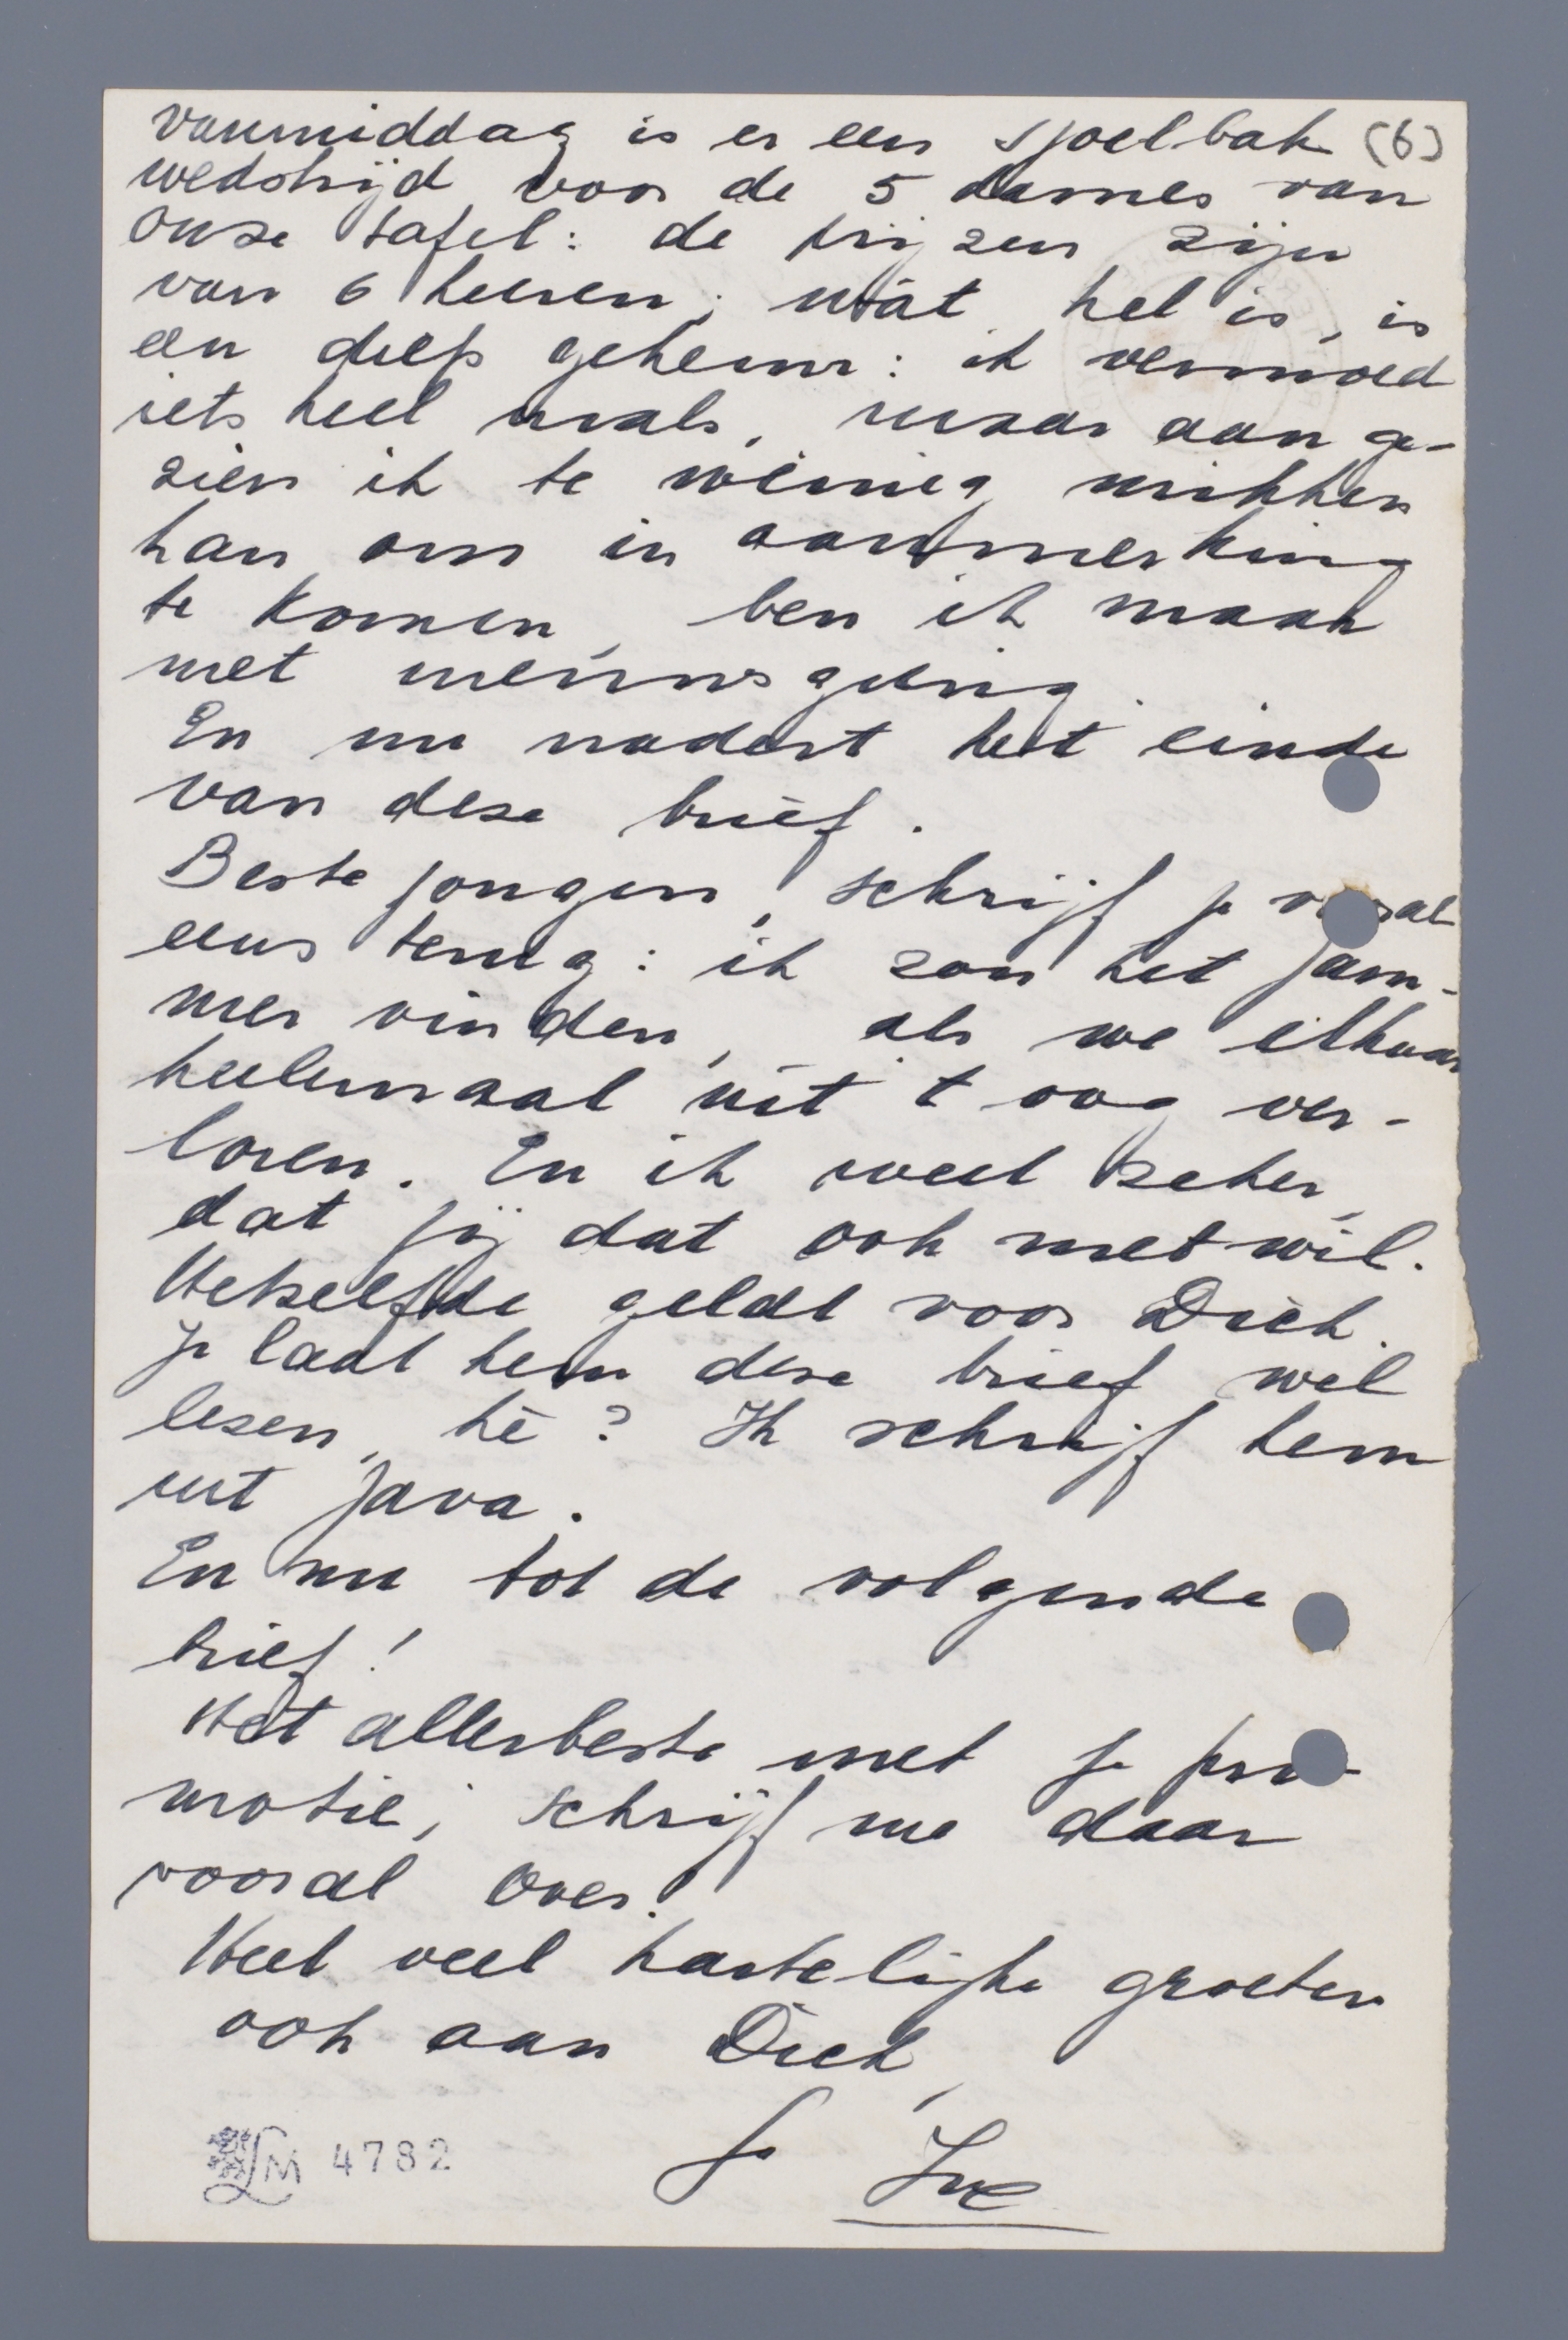 vanmiddag is er een sjoelbak (6)
wedstrijd voor de 5 dames van
onze tafel: de prijzen zijn
van 6 heeren; wát het is, is
een diep geheim: ik vermoed
iets heel mals, maar aan ge-
zien ik te weinig mikken
kan om in aanmerking
te komen, ben ik maar
niet nieuwsgierig.
En nu nadert het einde
van deze brief.
Beste jongen, schrijf je vooral
eens terug: ik zou het jam-
mer vinden, als we elkaar
heelemaal uit 't oog ver-
loren. En ik weet zeker,
dat jij dat ook niet wil.
Hetzelfde geldt voor Dick.
Je laat hem deze brief wel
lezen, hè? Ik schrijf hem
uit Java.
En nu tot de volgende
brief!
Het allerbeste met je pro-
motie; schrijf me daar
vooral over.
Heel veel hartelijke groeten
ook aan Dick,
je
LM 4782